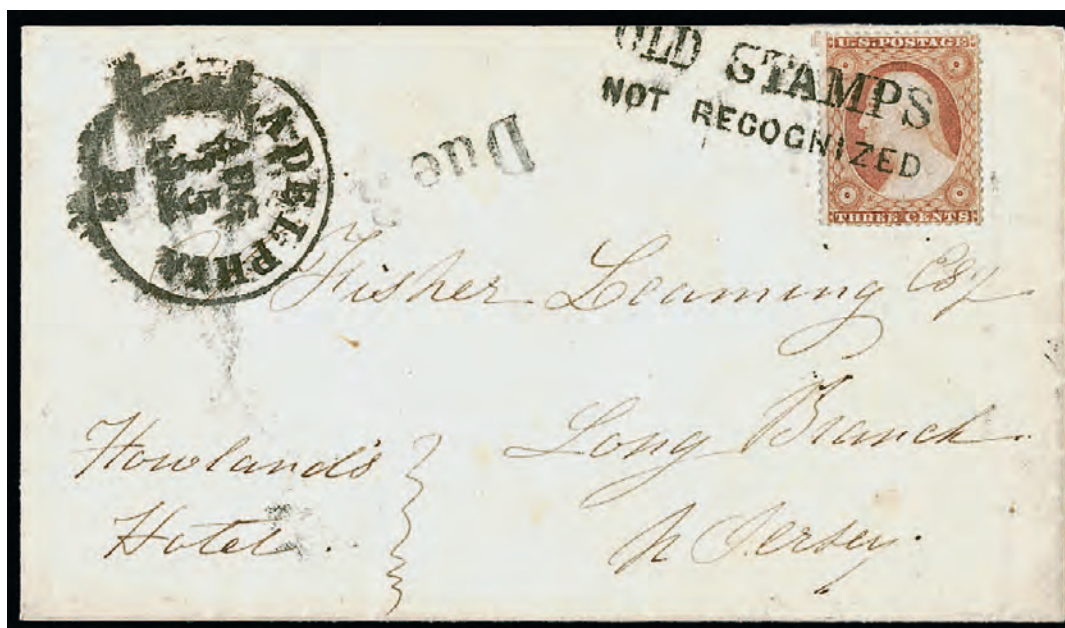 OLD STAMPS
NOT RECOGNIZED
U.S. POSTAGE
THREE CENTS
ADELPHIA
Due
Fisher Leaming Esq
Long Branch
N Jersey.
Howland's
Hotel.